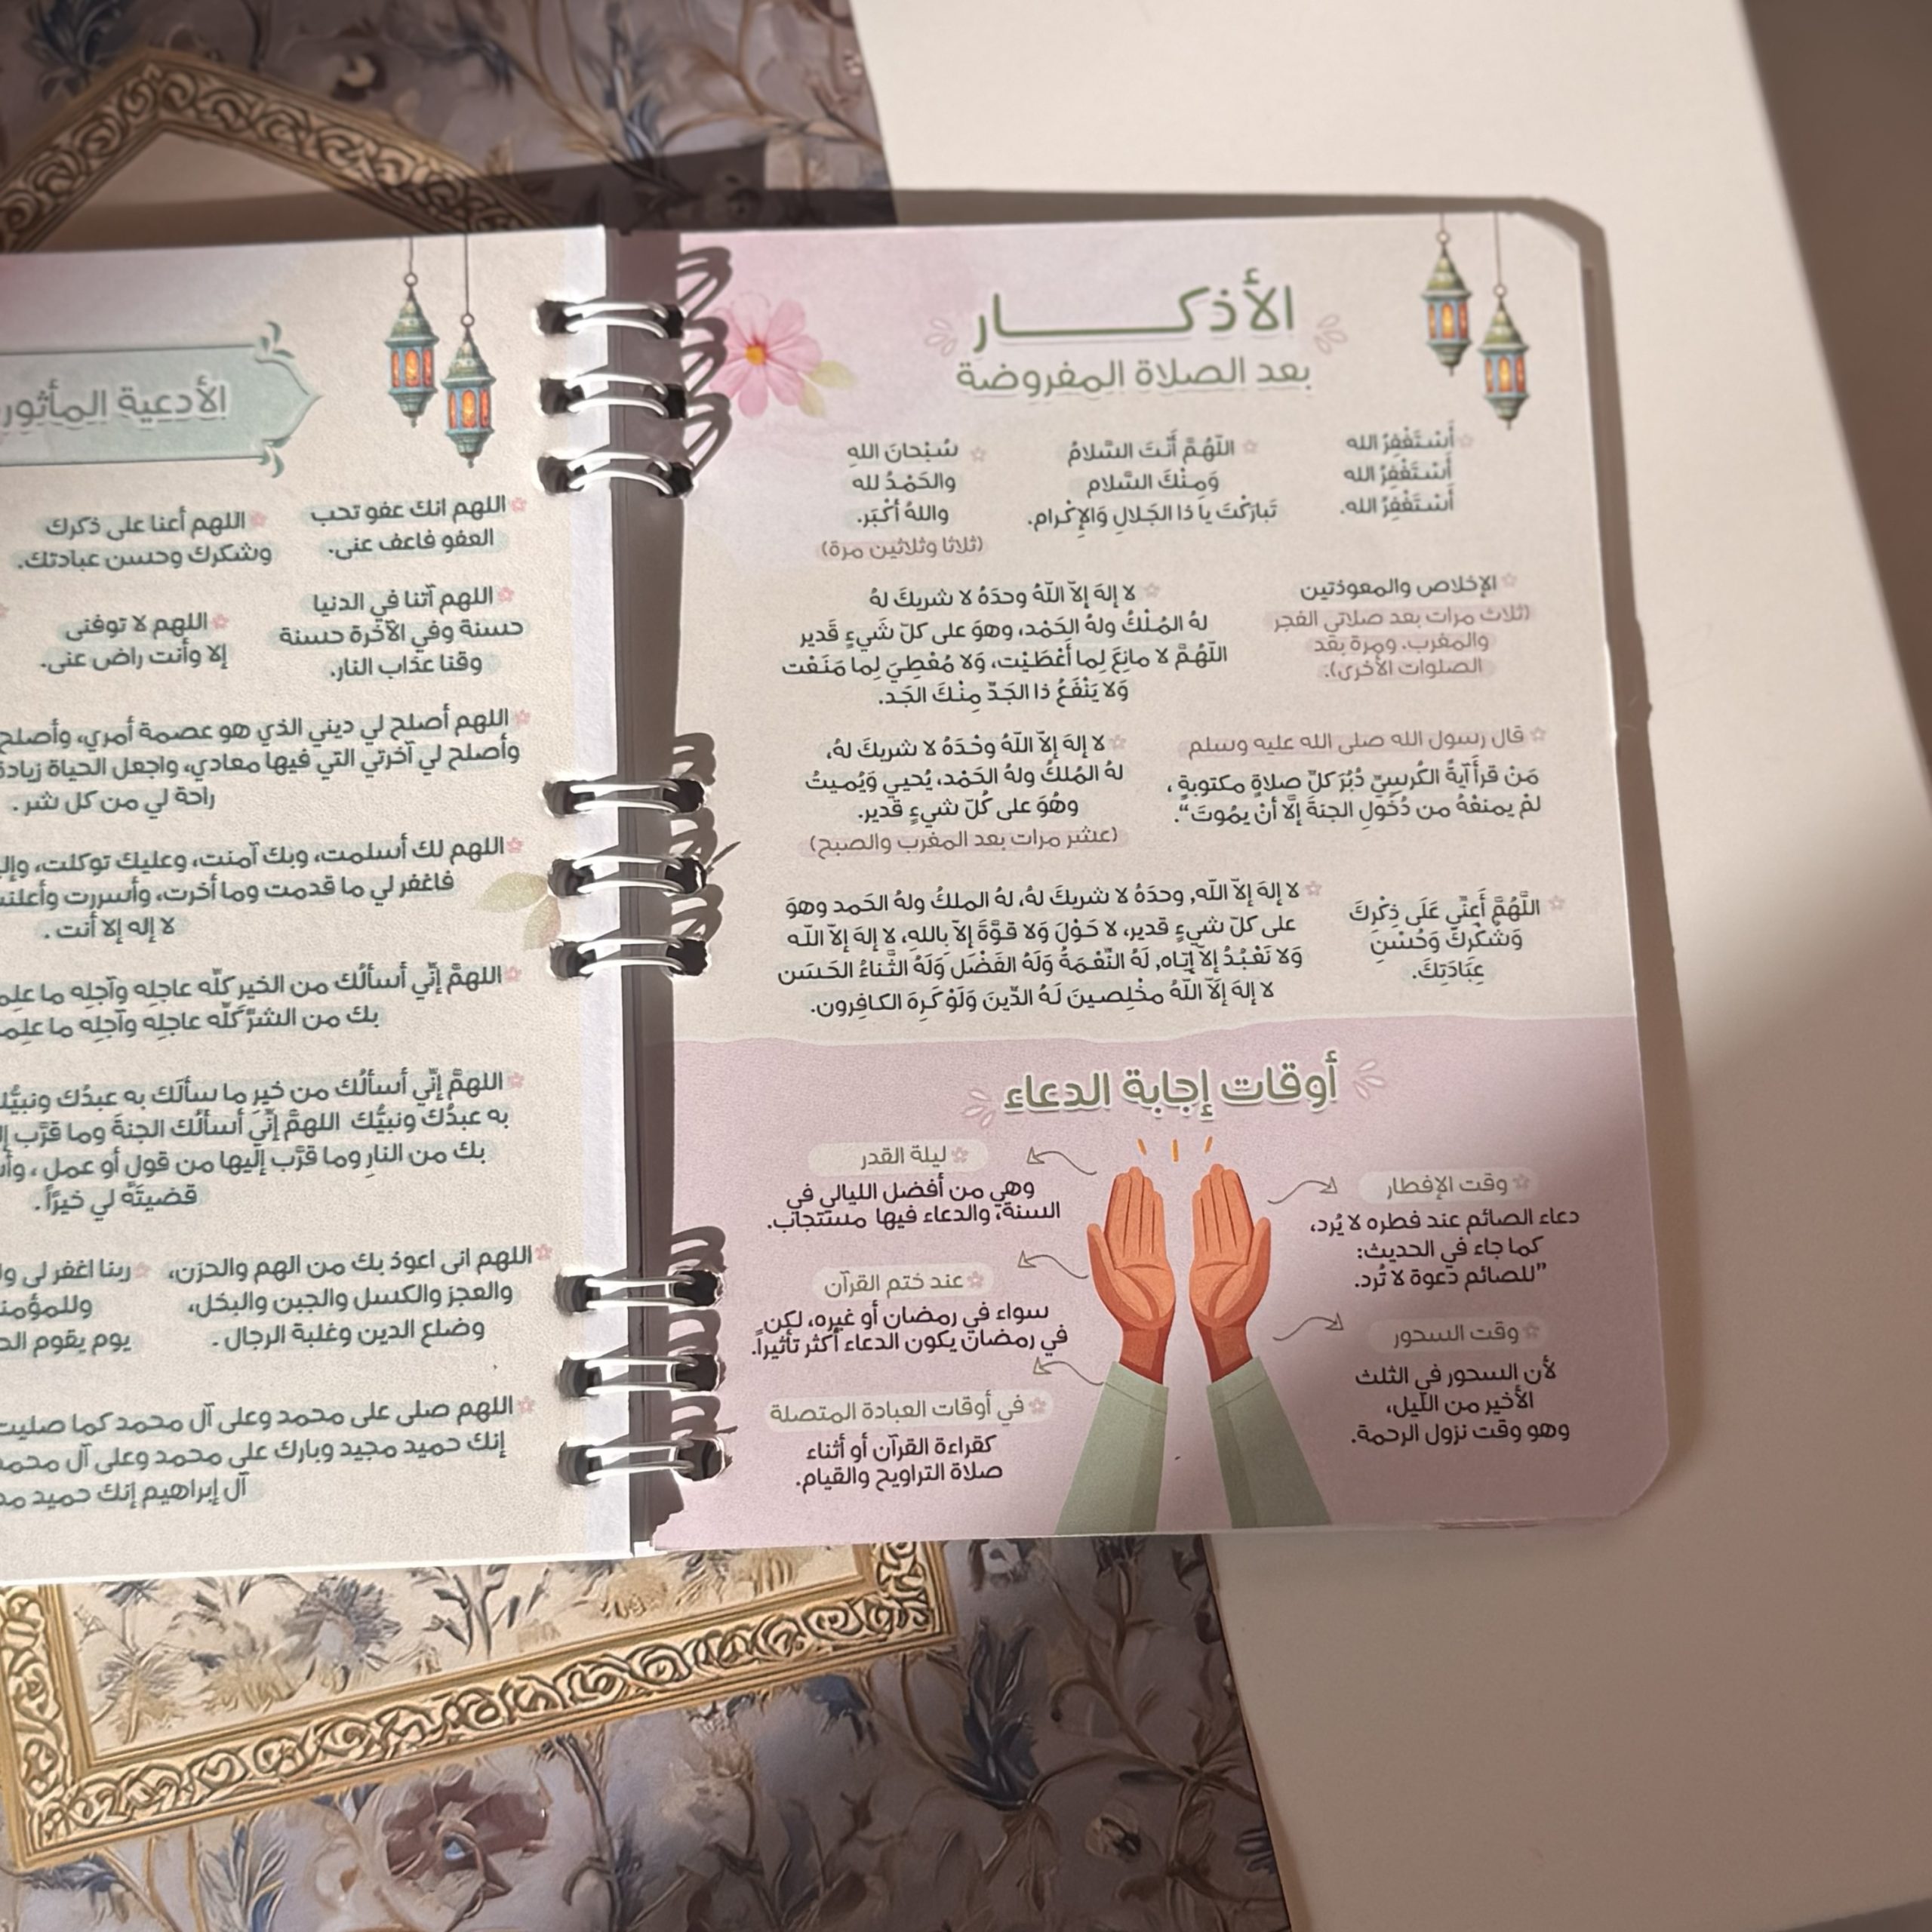 الأذكـــــار
بعد الصلاة المفروضة
أَسْتَغْفِرُ الله
أَسْتَغْفِرُ الله
أَسْتَغْفِرُ الله.
اللّهُمَّ أَنْتَ السَّلامُ
وَمِنْكَ السَّلام
تَبارَكْتَ يا ذا الجَلالِ وَالإِكْرام.
سُبْحانَ اللهِ
والحَمْدُ لله
واللهُ أكْبَر.
(ثلاثا وثلاثين مرة)
الإخلاص والمعوذتين
(ثلاث مرات بعد صلاتي الفجر
والمغرب. ومرة بعد
الصلوات الأخرى).
لا إلهَ إلاّ اللّهُ وحدَهُ لا شريكَ لهُ
لهُ المُلْكُ ولهُ الحَمْد، وهوَ على كلّ شَيءٍ قَدير
اللّهُمَّ لا مانِعَ لِما أَعْطَيْت، وَلا مُعْطِيَ لِما مَنَعْت
وَلا يَنْفَعُ ذا الجَدِّ مِنْكَ الجَد.
قال رسول الله صلى الله عليه وسلم
مَنْ قرأَ آيةَ الكُرسيِّ دُبُرَ كلِّ صلاةٍ مكتوبةٍ ،
لمْ يمنعْهُ من دُخُولِ الجنةَ إلَّا أنْ يمُوتَ“.
لا إلهَ إلاّ اللّهُ وحْدَهُ لا شريكَ لهُ،
لهُ المُلكُ ولهُ الحَمْد، يُحيي وَيُميتُ
وهُوَ على كُلّ شيءٍ قدير.
(عشر مرات بعد المغرب والصبح)
اللَّهُمَّ أَعِنِّي عَلَى ذِكْرِكَ
وَشُكْرِكَ وَحُسْنِ
عِبَادَتِكَ.
لا إلهَ إلاّ اللّه, وحدَهُ لا شريكَ لهُ، لهُ الملكُ ولهُ الحَمد وهوَ
على كلّ شيءٍ قدير، لا حَوْلَ وَلا قوَّةَ إلاّ باللهِ، لا إلهَ إلاّ اللّه
وَلا نَعْبُدُ إلاّ إيّاه, لَهُ النِّعْمَةُ وَلَهُ الفَضْل وَلَهُ الثَّناءُ الحَسَن
لا إلهَ إلاّ اللّهُ مخْلِصينَ لَهُ الدِّينَ وَلَوْ كَرِهَ الكافِرون.
أوقات إجابة الدعاء
وقت الإفطار
دعاء الصائم عند فطره لا يُرد،
كما جاء في الحديث:
”للصائم دعوة لا تُرد.
وقت السحور
لأن السحور في الثلث
الأخير من الليل،
وهو وقت نزول الرحمة.
ليلة القدر
وهي من أفضل الليالي في
السنة، والدعاء فيها مستجاب.
عند ختم القرآن
سواء في رمضان أو غيره، لكن
في رمضان يكون الدعاء أكثر تأثيراً.
في أوقات العبادة المتصلة
كقراءة القرآن أو أثناء
صلاة التراويح والقيام.
الأدعية
اللهم انك عفو تحب
العفو فاعف عنى.
اللهم أعنا على ذكرك
وشكرك وحسن عبادتك.
اللهم آتنا في الدنيا
حسنة وفي الآخرة حسنة
وقنا عذاب النار.
اللهم لا توفنى
إلا وأنت راض عنى.
اللهم أصلح لي ديني الذي هو عصمة أمري، وأصلح
وأصلح لي آخرتي التي فيها معادي، واجعل الحياة زيادة
راحة لي من كل شر .
اللهم لك أسلمت، وبك آمنت، وعليك توكلت،
فاغفر لي ما قدمت وما أخرت، وأسررت
لا إله إلا أنت .
اللهمَّ إنِّي أسألُك من الخيرِ كلِّه عاجلِه وآجلِه ما
بك من الشرِّ كلِّه عاجلِه وآجلِه ما
اللهمَّ إنِّي أسألُك من خيرِ ما سألَك به عبدُك
به عبدُك ونبيُّك اللهمَّ إنِّي أسألُك الجنةَ وما قرَّب
بك من النارِ وما قرَّب إليها من قولٍ أو عمل ،
قضيتَهُ لي خيرًا .
اللهم انى اعوذ بك من الهم والحزن،
والعجز والكسل والجبن والبخل،
وضلع الدين وغلبة الرجال .
ربنا اغفر لى
يوم يقوم
اللهم صلى على محمد وعلى آل محمد كما صليت
إنك حميد مجيد وبارك على محمد وعلى آل
آل إبراهيم إنك حميد